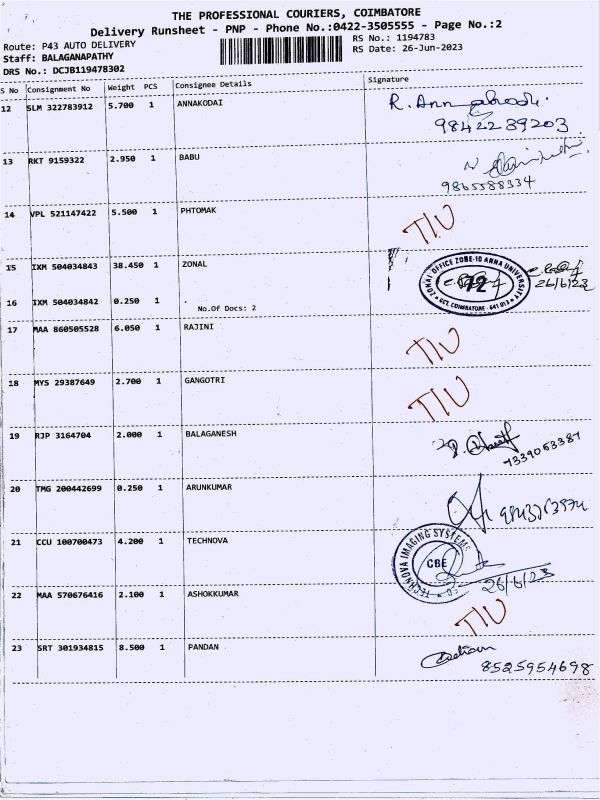 THE PROFESSIONAL COURIERS, COIMBATORE
Delivery Runsheet - PNP - Phone No.:0422-3505555 - Page No.:2
Route: P43 AUTO DELIVERY RS No.: 1194783
Staff: BALAGANAPATHY RS Date: 26-Jun-2023
DRS No.: DCJB119478302
S No Consignment No Weight PCS Consignee Details Signature
12 SLM 322783912 5.700 1 ANNAKODAI
9842239203
13 RKT 9159322 2.950 1 BABU
9865588334
14 VPL 521147422 5.500 1 PHTOMAK T/U
15 IXM 504034843 38.450 1 ZONAL ZONAL OFFICE ZONE-10 ANNA UNIVERSITY 72 GCT, COIMBATORE - 641 013 26/6/23
16 IXM 504034842 0.250 1 .
No.Of Docs: 2
17 MAA 860505528 6.050 1 RAJINI T/U
18 MYS 29387649 2.700 1 GANGOTRI T/U
19 RJP 3164704 2.000 1 BALAGANESH
7339063387
20 TMG 200442699 0.250 1 ARUNKUMAR
21 CCU 100700473 4.200 1 TECHNOVA TECHNOVA IMAGING SYSTEMS CBE
26/6/23
22 MAA 570676416 2.100 1 ASHOKKUMAR T/U
23 SRT 301934815 8.500 1 PANDAN
8525954698